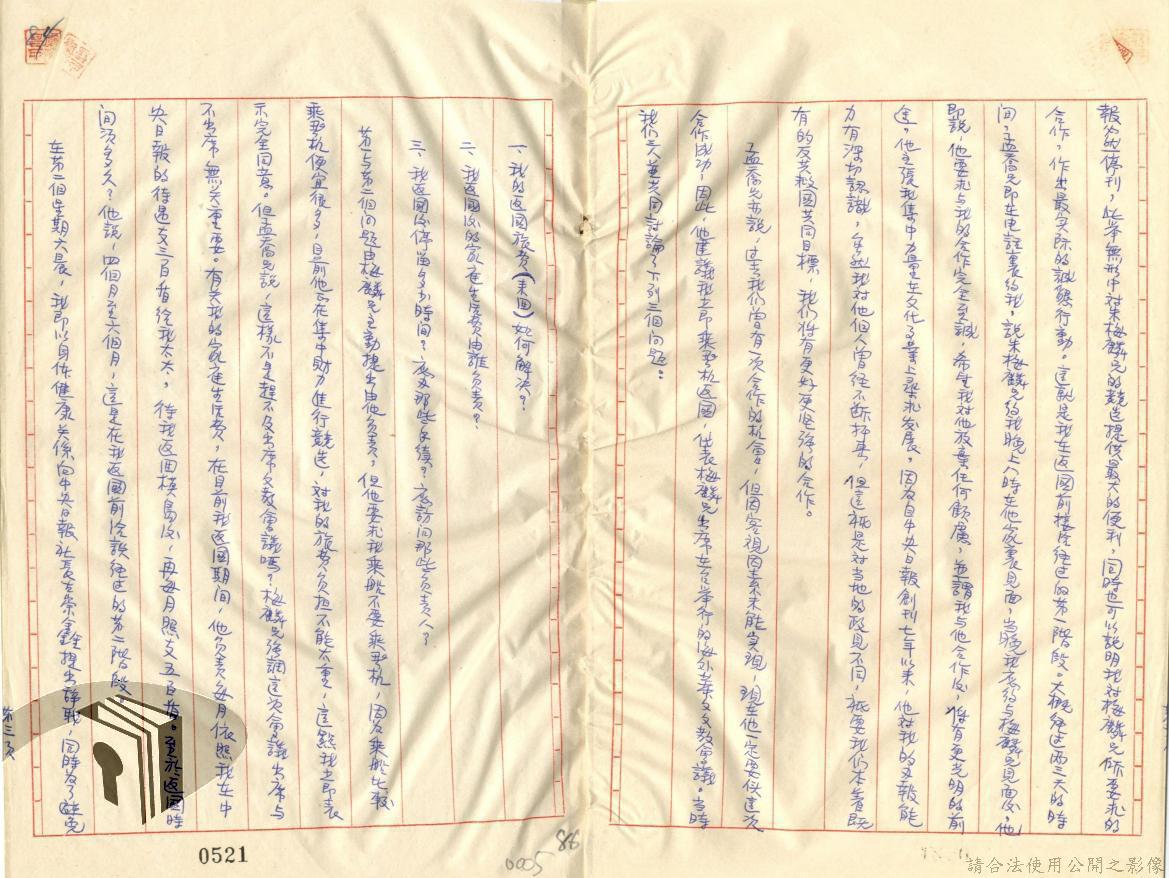 報為然停刊，此舉無形中對朱梅麟兄的競選提供最大的便利，同時也可以說明我对梅麟兄所要求的
合作，作出最实际的誠懇行動。這就是我在返國前接洽經过的第一階段。大概经过兩三天的時
間，孟喬兄即在电話裏约我，說朱梅麟兄约我晚上八時在他家裏見面，当晚我應約与梅麟兄見面後，他
即說，他要求与我的合作完全至誠，希望我对他放棄任何顧慮，並謂我与他合作後，將有更光明的前
途，他主張我集中力量在文化事業上尋求發展，因为自中央日報創刊七年以來，他对我的文報能
力有深切認識，年來我对他個人曾经不断抨击，但這祇是对当地的政見不同，祇要我们本着既
有的反共救國共同目標，我们將有更好更坚强的合作。
孟喬兄亦說，过去我们曾有一次合作的机會，但因客視因素未能实現，現在他一定要促這次
合作成功，因此，他建議我立即乘飛机返國，代表梅麟兄出席在台举行的海外華文文教會議。当時
我们三人並共同討論了下列三個问題：
一、我的返國旅費（來回）如何解决？
二、我返國後的家庭生活費由誰負責？
三、我返國後停留多少時间？應文那些手續？應訪问那些負責人？
第一与第二個问題由梅麟兄主動提出由他負責，但他要求我乘船不要乘飛机，因为乘船比較
乘飛机便宜很多，目前他正在集中財力進行競選，对我的旅費負担不能太重，這點我立即表
示完全同意。但孟喬兄說，這樣不是趕不及出席文教會議嗎？梅麟兄强調這次會議出席与
不出席無关重要。有关我的家庭生活費，在目前我返國期间，他負責每月依照我在中
央日報的待遇支三百盾给我太太，待我返回模島後，再每月照支五百盾。至於返國時
间須多久？他說，四個月至六個月，這是在我返國前洽談经过的第二階段。
在第二個星期六晨，我即以身体健康关係向中央日報社長左崇鑫提出辞职，同時为了避免
第三頁
0521
0005
86
84
請合法使用公開之影像